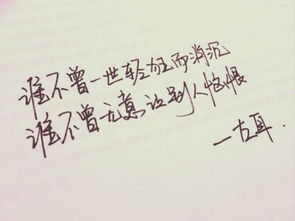 谁不曾一世轻狂而消沉
谁不曾无意让别人恼恨
一古耳.